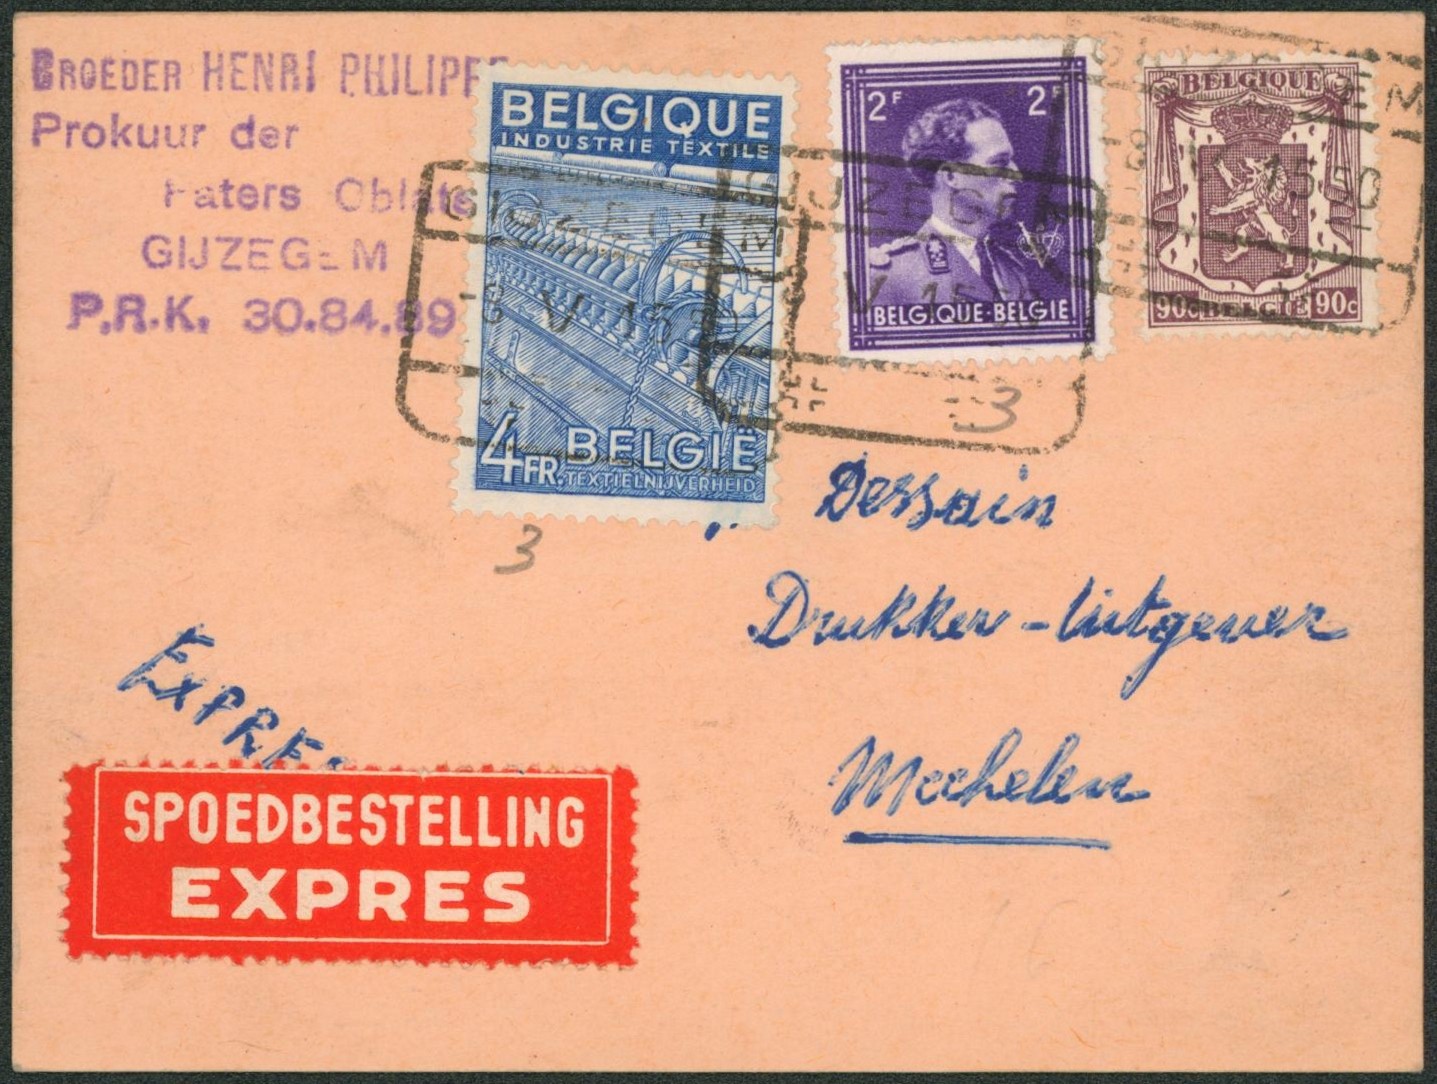 BROEDER HENRI PHILIPPE
Prokuur der
Paters Oblaten
GIJZEGEM
P.R.K. 30.84.89
BELGIQUE
INDUSTRIE TEXTILE
4FR. BELGIË
TEXTIELNIJVERHEID
2F 2F
BELGIQUE-BELGIË
BELGIQUE
90c BELGIË 90c
GIJZEGEM
V 15
GIJZEGEM
V 15
GIJZEGEM
V 15
3
3
Dessain
Drukker-Uitgever
Mechelen
EXPRES
SPOEDBESTELLING
EXPRES